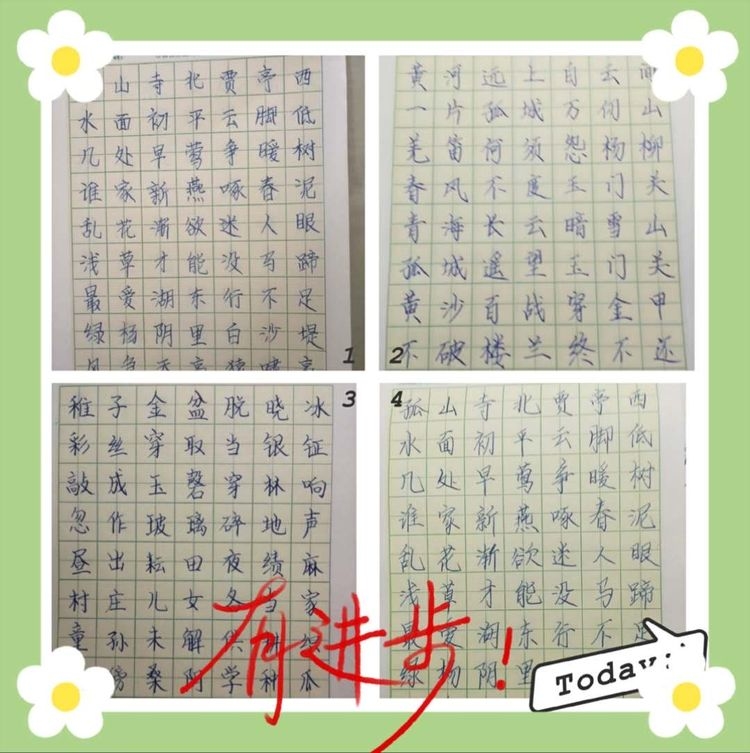 山寺北贾亭西
水面初平云脚低
几处早莺争暖树
谁家新燕啄春泥
乱花渐欲迷人眼
浅草才能没马蹄
最爱湖东行不足
绿杨阴里白沙堤
1
黄河远上白云间
一片孤城万仞山
羌笛何须怨杨柳
春风不度玉门关
青海长云暗雪山
孤城遥望玉门关
黄沙百战穿金甲
不破楼兰终不还
2
稚子金盆脱晓冰
彩丝穿取当银钲
敲成玉磬穿林响
忽作玻璃碎地声
昼出耘田夜绩麻
村庄儿女各当家
童孙未解供耕织
傍桑阴学种瓜
3
孤山寺北贾亭西
水面初平云脚低
几处早莺争暖树
谁家新燕啄春泥
乱花渐欲迷人眼
浅草才能没马蹄
最爱湖东行不足
绿杨阴里
4
有进步！
Today